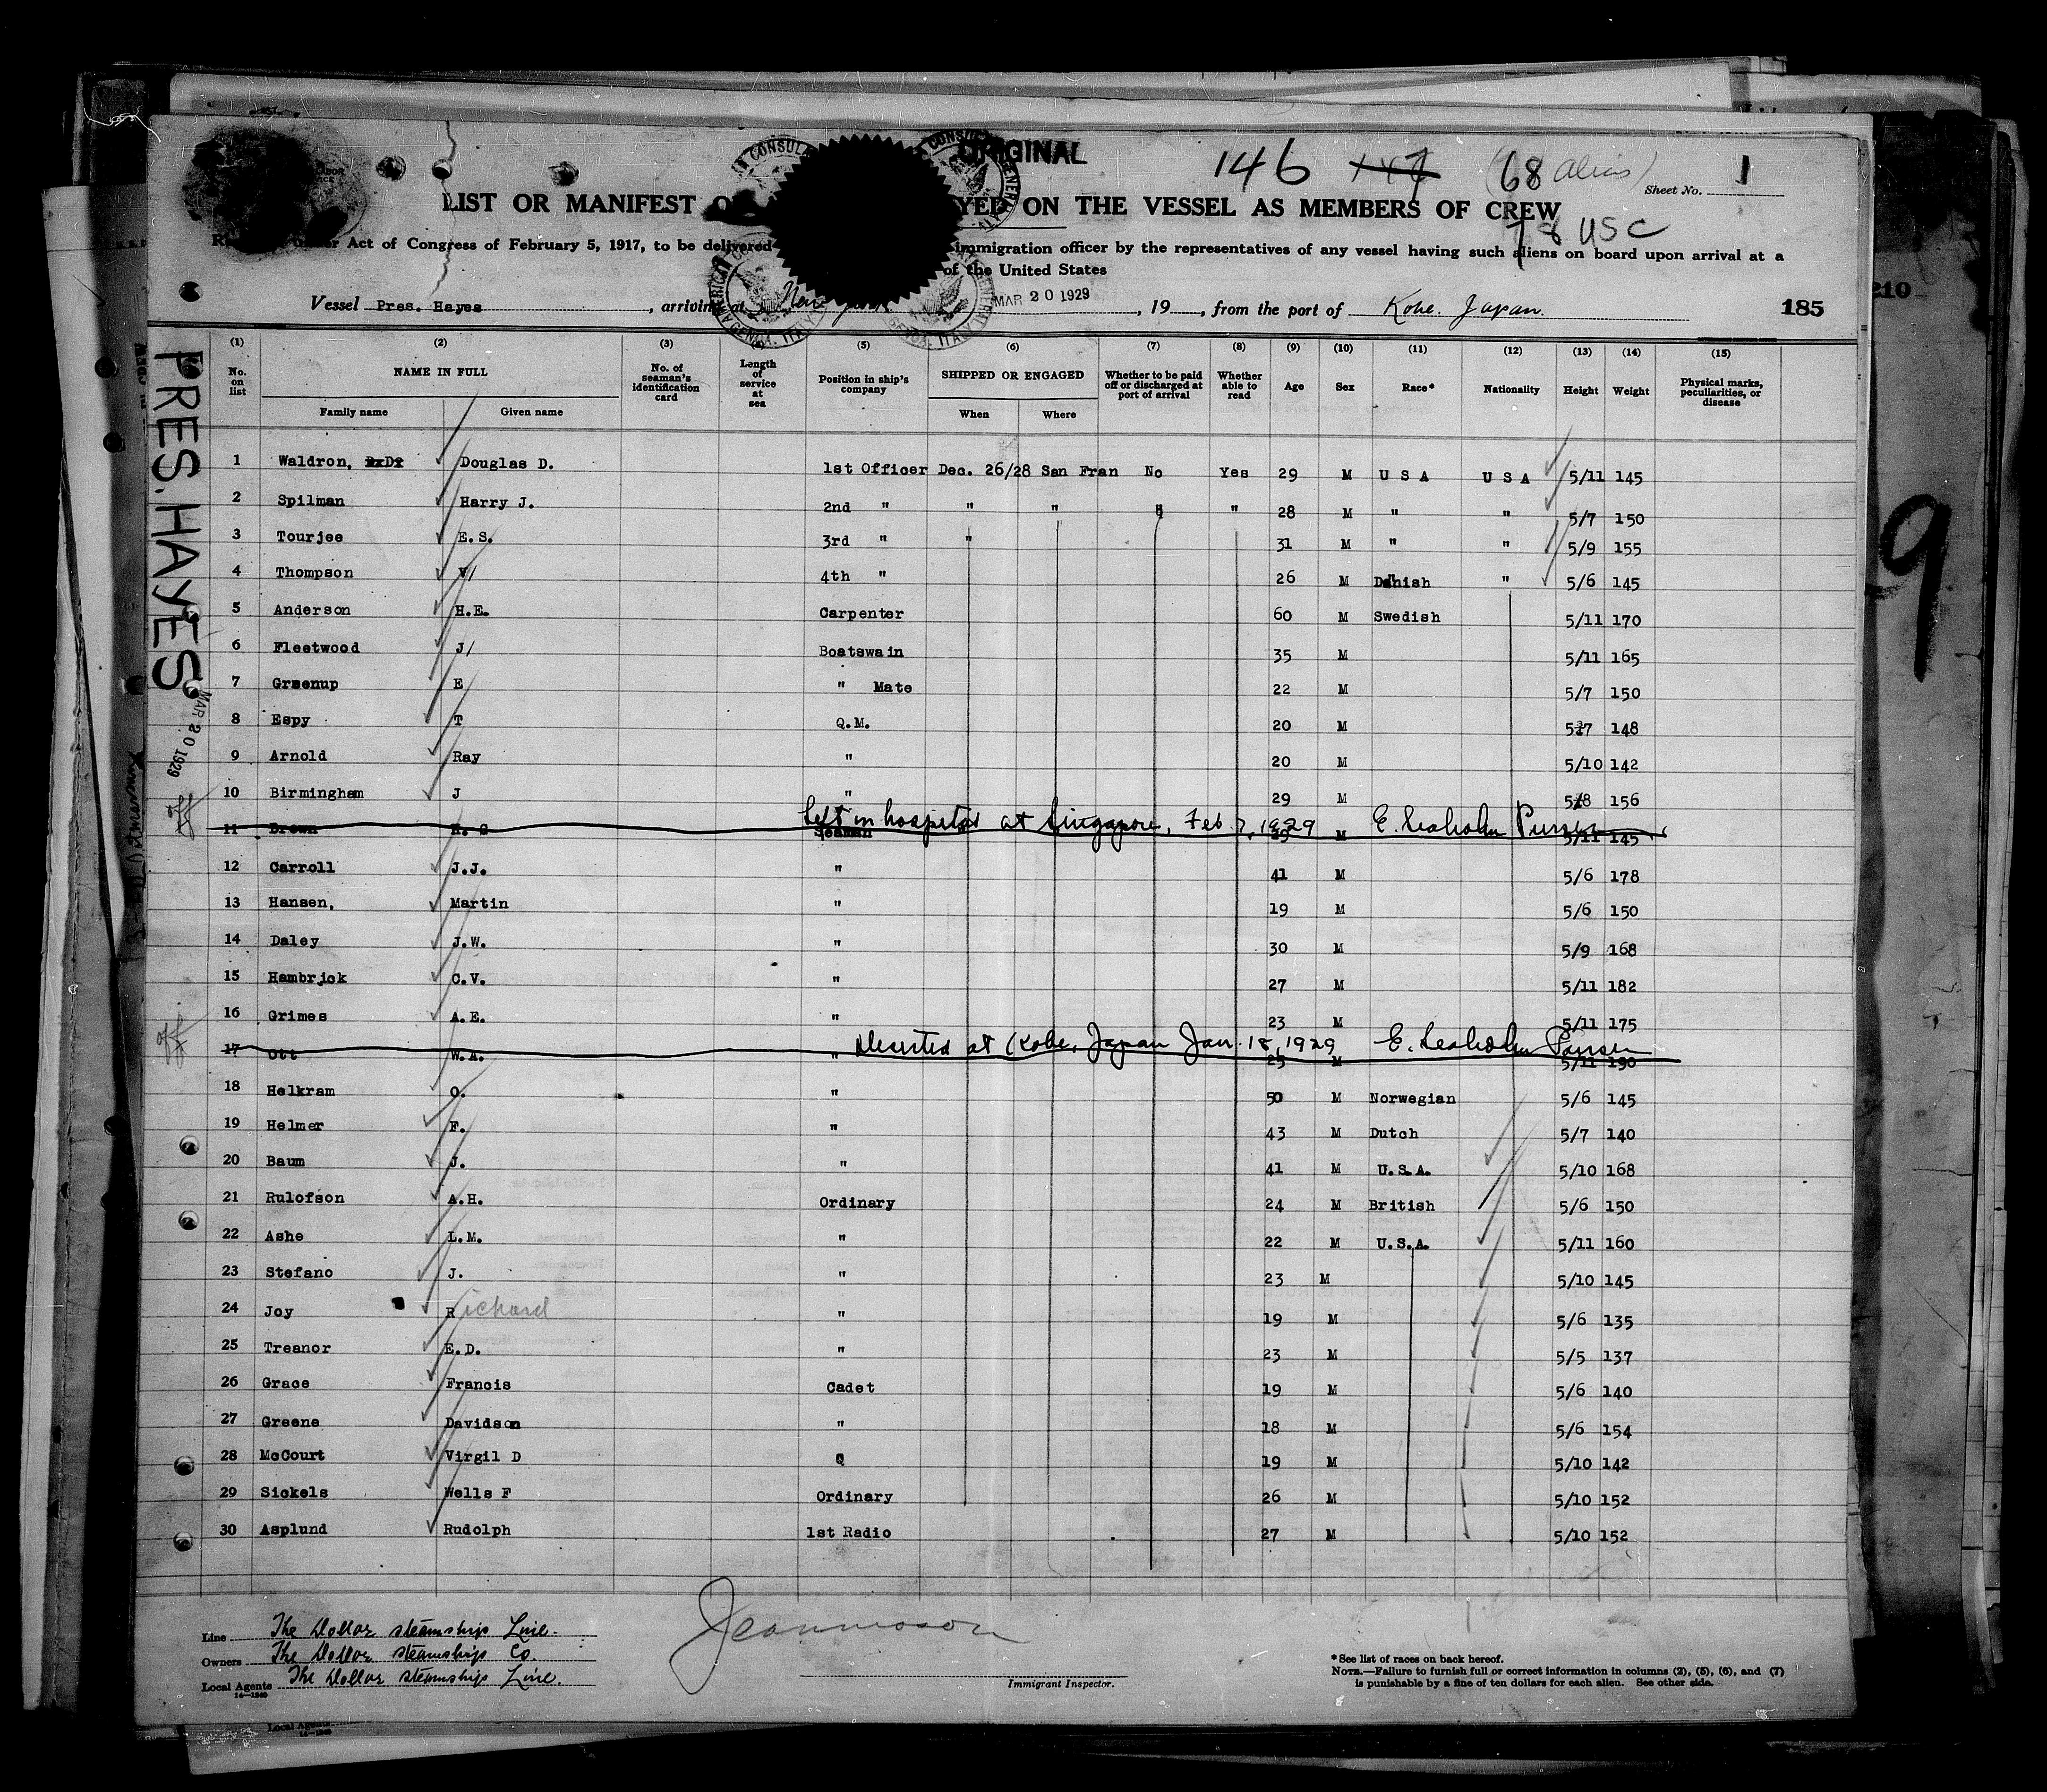 ORIGINAL
146 (68 aliens)
Sheet No. 1
LIST OR MANIFEST O YED ON THE VESSEL AS MEMBERS OF CREW
78 USC
under Act of Congress of February 5, 1917, to be delivered immigration officer by the representatives of any vessel having such aliens on board upon arrival at a
of the United States
Vessel Pres. Hayes, arriving at New York MAR 20 1929, 19, from the port of Kobe. Japan. 185
210
9
PRES. HAYES
MAR 20 1929
(1) (2) (3) (5) (6) (7) (8) (9) (10) (11) (12) (13) (14) (15)
No. on list NAME IN FULL No. of seaman's identification card Length of service at sea Position in ship's company SHIPPED OR ENGAGED Whether to be paid off or discharged at port of arrival Whether able to read Age Sex Race* Nationality Height Weight Physical marks, peculiarities, or disease
Family name Given name When Where
1 Waldron, Douglas D. 1st Officer Dec. 26/28 San Fran No Yes 29 M U S A U S A 5/11 145
2 Spilman Harry J. 2nd " " " " " 28 M " " 5/7 150
3 Tourjee E.S. 3rd " " 31 M " " 5/9 155
4 Thompson V/ 4th " 26 M Danish " 5/6 145
5 Anderson H.E. Carpenter 60 M Swedish 5/11 170
6 Fleetwood J/ Boatswain 35 M 5/11 165
7 Greenup E " Mate 22 M 5/7 150
8 Espy T Q.M. 20 M 5/7 148
9 Arnold Ray " 20 M 5/10 142
10 Birmingham J " 29 M 5/8 156
Left in hospital at Singapore, Feb 7, 1929 E. Seaholm Purser
11 Brown H. S Seaman 29 M 5/11 145
12 Carroll J.J. " 41 M 5/6 178
13 Hansen, Martin " 19 M 5/6 150
14 Daley J.W. " 30 M 5/9 168
15 Hambrick C.V. " 27 M 5/11 182
16 Grimes A.E. " 23 M 5/11 175
Deserted at Kobe, Japan Jan. 18, 1929 E. Seaholm Purser
17 Ott W.A. " 25 M 5/11 190
18 Helkram O. " 50 M Norwegian 5/6 145
19 Helmer F. " 43 M Dutch 5/7 140
20 Baum J. " 41 M U.S.A. 5/10 168
21 Rulofson A.H. Ordinary 24 M British 5/6 150
22 Ashe L.M. " 22 M U.S.A. 5/11 160
23 Stefano J. " 23 M 5/10 145
24 Joy Richard " 19 M 5/6 135
25 Treanor E.D. " 23 M 5/5 137
26 Grace Francis Cadet 19 M 5/6 140
27 Greene Davidson " 18 M 5/6 154
28 McCourt Virgil D Q 19 M 5/10 142
29 Sickels Wells F Ordinary 26 M 5/10 152
30 Asplund Rudolph 1st Radio 27 M 5/10 152
Line The Dollar steamship Line.
Owners The Dollar steamship Co.
Local Agents The Dollar steamship Line.
14—1240
Immigrant Inspector.
*See list of races on back hereof.
NOTE.—Failure to furnish full or correct information in columns (2), (5), (6), and (7)
is punishable by a fine of ten dollars for each alien. See other side.
Local Agents